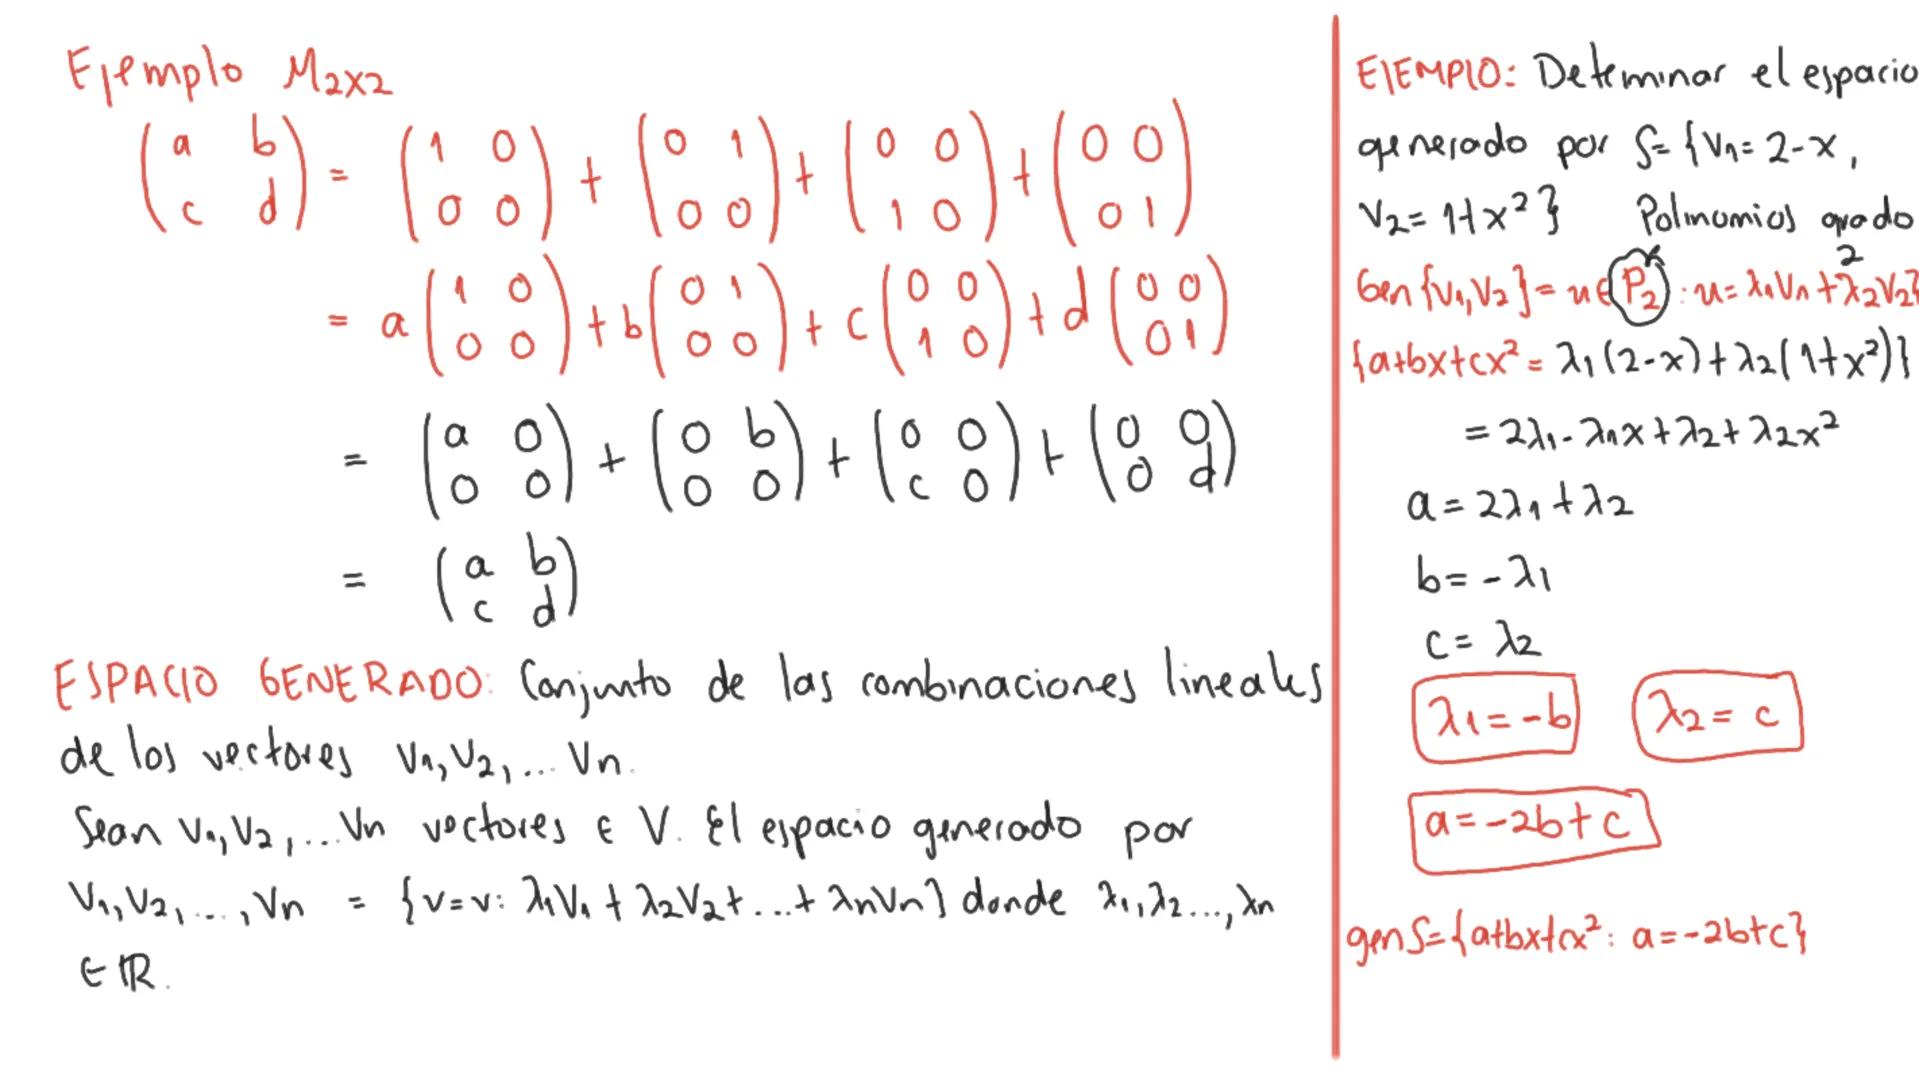 Ejemplo M2x2
(a b; c d) = (1 0; 0 0) + (0 1; 0 0) + (0 0; 1 0) + (0 0; 0 1)
= a(1 0; 0 0) + b(0 1; 0 0) + c(0 0; 1 0) + d(0 0; 0 1)
= (a 0; 0 0) + (0 b; 0 0) + (0 0; c 0) + (0 0; 0 d)
= (a b; c d)
ESPACIO GENERADO: Conjunto de las combinaciones lineales
de los vectores v1, v2, ... vn.
Sean v1, v2, ... vn vectores ∈ V. El espacio generado por
v1, v2, ..., vn = {v=v: λ1v1 + λ2v2+...+ λnvn} donde λ1, λ2..., λn
∈ ℝ.
EJEMPLO: Determinar el espacio
generado por S= {v1= 2-x,
v2= 1+x²} Polinomios grado
2
Gen{v1,v2}= u∈P2 : u= λ1v1+λ2v2}
{a+bx+cx²= λ1(2-x)+λ2(1+x²)}
= 2λ1-λ1x+λ2+λ2x²
a= 2λ1+λ2
b= -λ1
c= λ2
λ1= -b λ2= c
a= -2b+c
genS={a+bx+cx²: a=-2b+c}